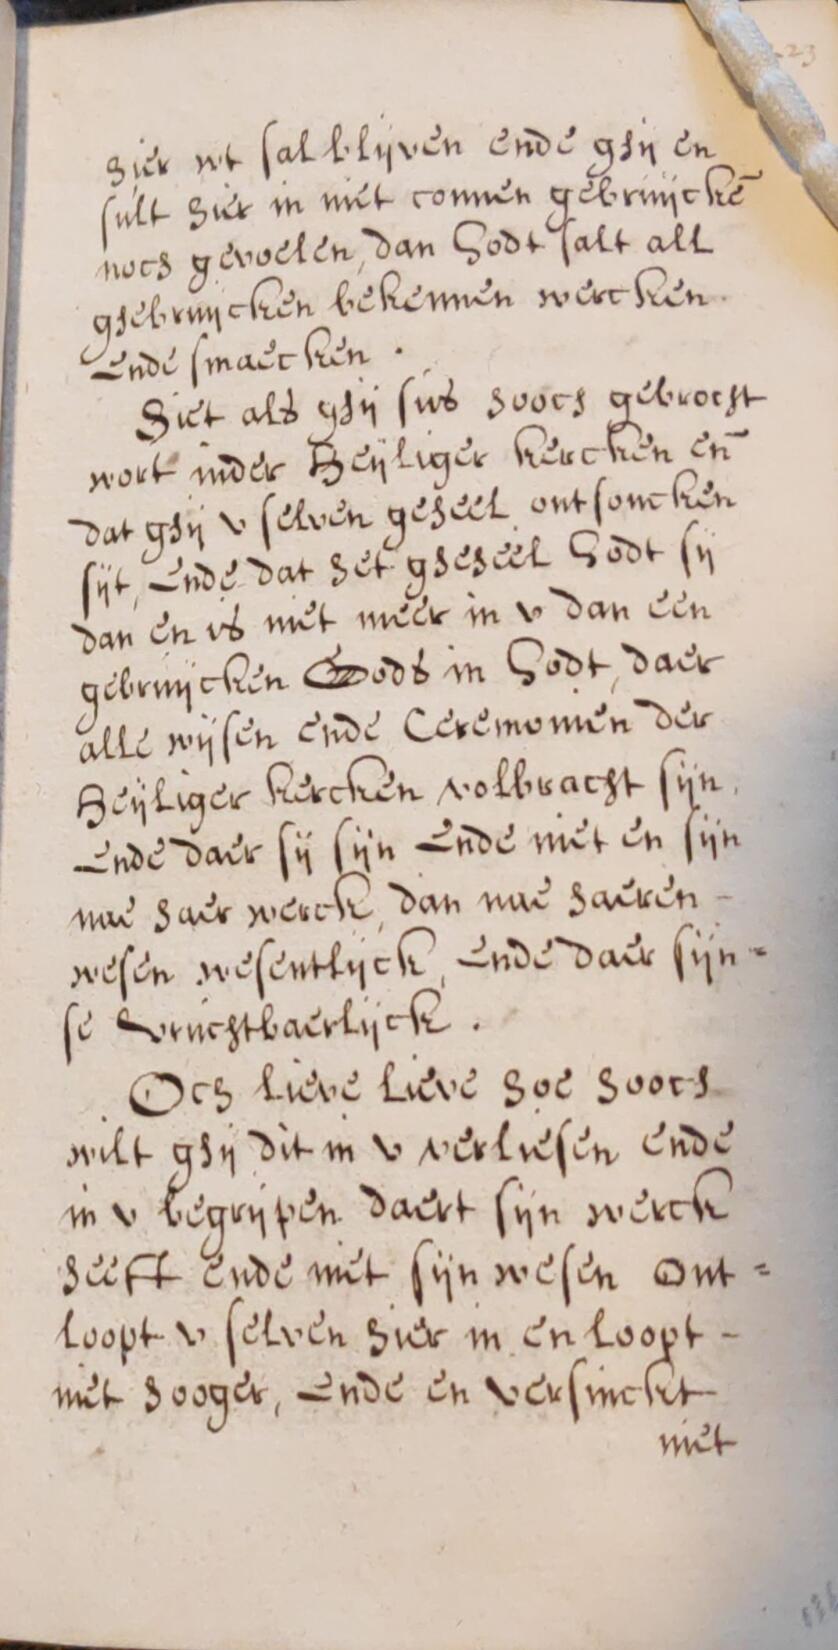 223
hier wt sal blijven ende ghij en
sult hier in niet connen gebruijckē
noch gevoelen, dan Godt salt all
ghebruijcken bekennen wercken
Ende smaecken .
Siet als ghij sus hooch gebrocht
wort inder Heijliger kercken en̄
dat ghij v selven geheel ontsoncken
sijt, Ende dat het gheheel Godt sij
dan en is niet meer in v dan een
gebruijcken Gods in Godt, daer
alle wijsen ende Ceremonien der
Heijliger kercken volbracht sijn,
Ende daer sij sijn Ende niet en sijn
nae haer werck, dan nae haeren -
wesen wesentlijck, Ende daer sijn =
se vruchtbaerlijck .
Och lieve lieve hoe hooch
wilt ghij dit in v verliesen ende
in v begrijpen daert sijn werck
heeft ende niet sijn wesen Ont =
loopt v selven hier in en loopt -
niet hooger, Ende en versinckt
niet